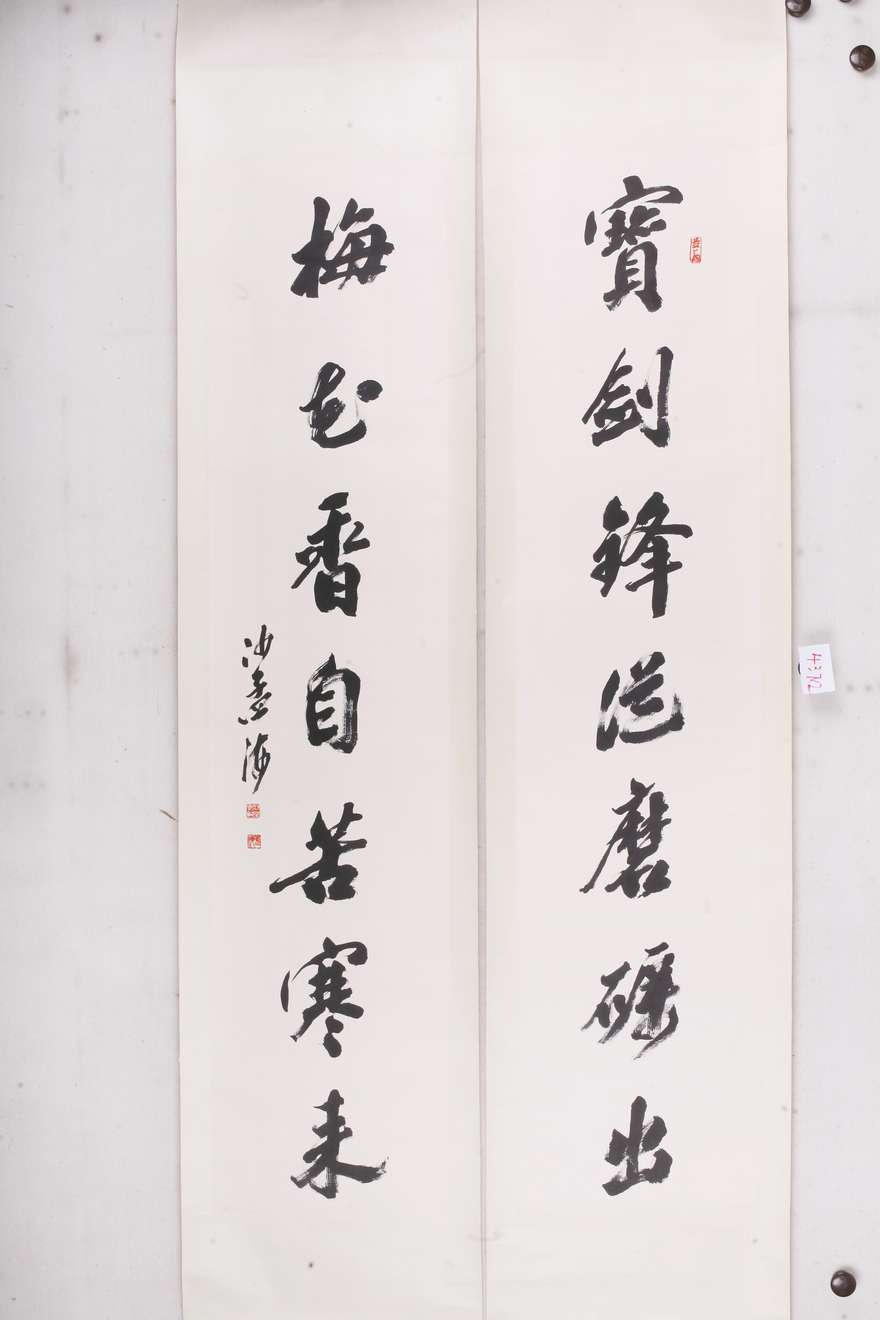 寶劍鋒從磨礪出
梅花香自苦寒來
沙孟海
4372